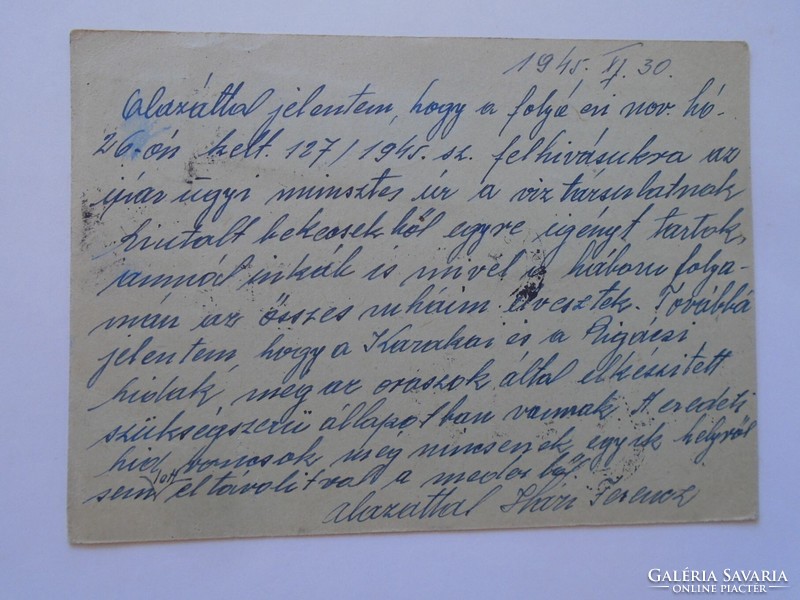 1945. XI. 30.
Alazattal jelentem, hogy a folyó évi nov. hó-
26-ón kelt. 127/1945. sz. felhivásukra az
ipárügyi minszter úr a viztársulatnak
kiutalt bekecsekből egyre igényt tartok,
annál inkáb is mivel a háboru folya-
mán az összes ruháim elvesztek. Továbbá
jelentem, hogy a Karakai és a Rigácsi
hidak, meg az oroszok által elkészitett
szükségszerü állapotban vannak. A eredeti
hid roncsok még nincsenek egyik helyről
sem eltávolitva a mederből.
Alazattal Ihári Ferencz
GALÉRIA SAVARIA
ONLINE PIACTÉR